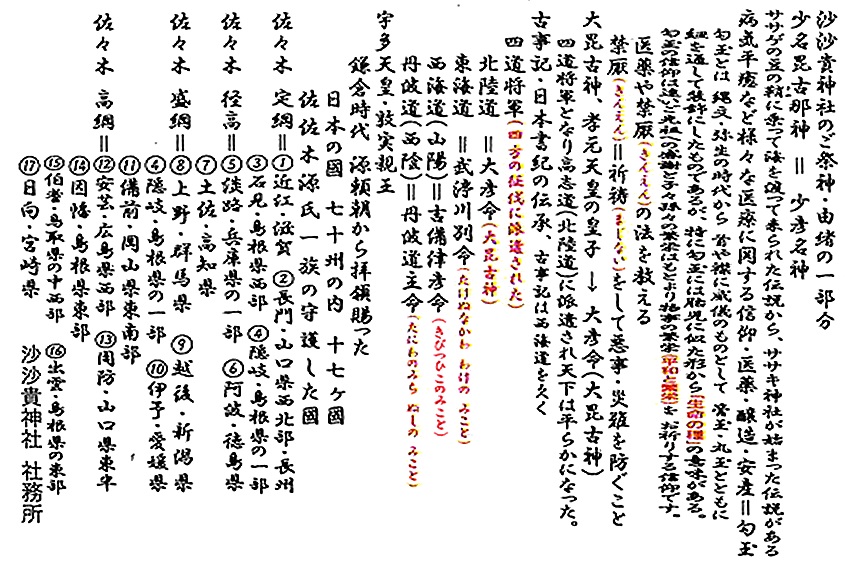 沙沙貴神社のご祭神・由緒の一部分
少名毘古那神 ＝ 少彦名神
ササゲの豆の鞘に乗って海を渡って来られた伝説から、ササキ神社が始まった伝説がある
病気平癒など様々な医療に関する信仰・医薬・醸造・安産＝勾玉
勾玉とは 縄文・弥生の時代から 首や襟に威儀のものとして 管玉・丸玉とともに
紐を通して装飾にしたものであるが、特に勾玉には胎児に似た形から「生命の種」の意味がある。
勾玉の信仰は遠い先祖への感謝と子々孫々の繁栄はもとより 物事の繁栄(平和と繁栄)を お祈りする信仰です。
医薬や禁厭(きんえん)の法を教える
禁厭(きんえん)＝祈祷(まじない)をして悪事・災難を防ぐこと
大毘古神、孝元天皇の皇子 → 大彦命(大毘古神)
四道将軍となり高志道(北陸道)に派遣され天下は平らかになった。
古事記・日本書紀の伝承、古事記は西海道を欠く
四道将軍(四方の征伐に派遣された)
北陸道 ＝大彦命(大毘古神)
東海道 ＝武渟川別命(たけぬなかわ わけの みこと)
西海道(山陽)＝吉備津彦命(きびつひこのみこと)
丹波道(西陰)＝丹波道主命(たにわのみち ぬしの みこと)
宇多天皇・敦実親王
鎌倉時代 源頼朝から拝領賜った
日本の國 七十州の内 十七ヶ國
佐佐木源氏一族の守護した國
佐々木 定綱＝①近江・滋賀 ②長門・山口県西北部・長州
③石見・島根県西部 ④隠岐・島根県の一部
佐々木 経高＝⑤淡路・兵庫県の一部 ⑥阿波・徳島県
⑦土佐・高知県
佐々木 盛綱＝⑧上野・群馬県 ⑨越後・新潟県
④隠岐・島根県の一部 ⑩伊予・愛媛県
⑪備前・岡山県東南部
佐々木 高綱＝⑫安芸・広島県西部 ⑬周防・山口県東半
⑭因幡・鳥根県東部
⑮伯耆・鳥取県の中西部 ⑯出雲・島根県の東部
⑰日向・宮崎県 沙沙貴神社 社務所